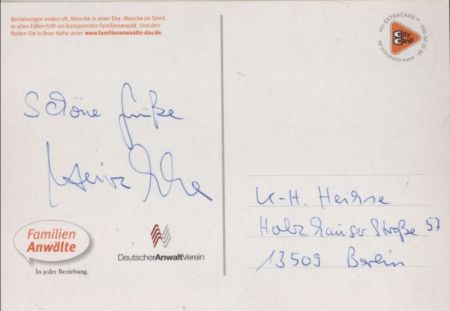 Beziehungen enden oft. Manche in einer Ehe. Manche im Streit.
In allen Fällen hilft ein kompetenter Familienanwalt. Und den
finden Sie in Ihrer Nähe unter www.familienanwaelte-dav.de.
EXTRACARD
City
Cards
Schöne Grüße
K-H. Heihse
Holzhauser Straße 57
13509 Berlin
Familien
Anwälte
In jeder Beziehung.
DeutscherAnwaltVerein